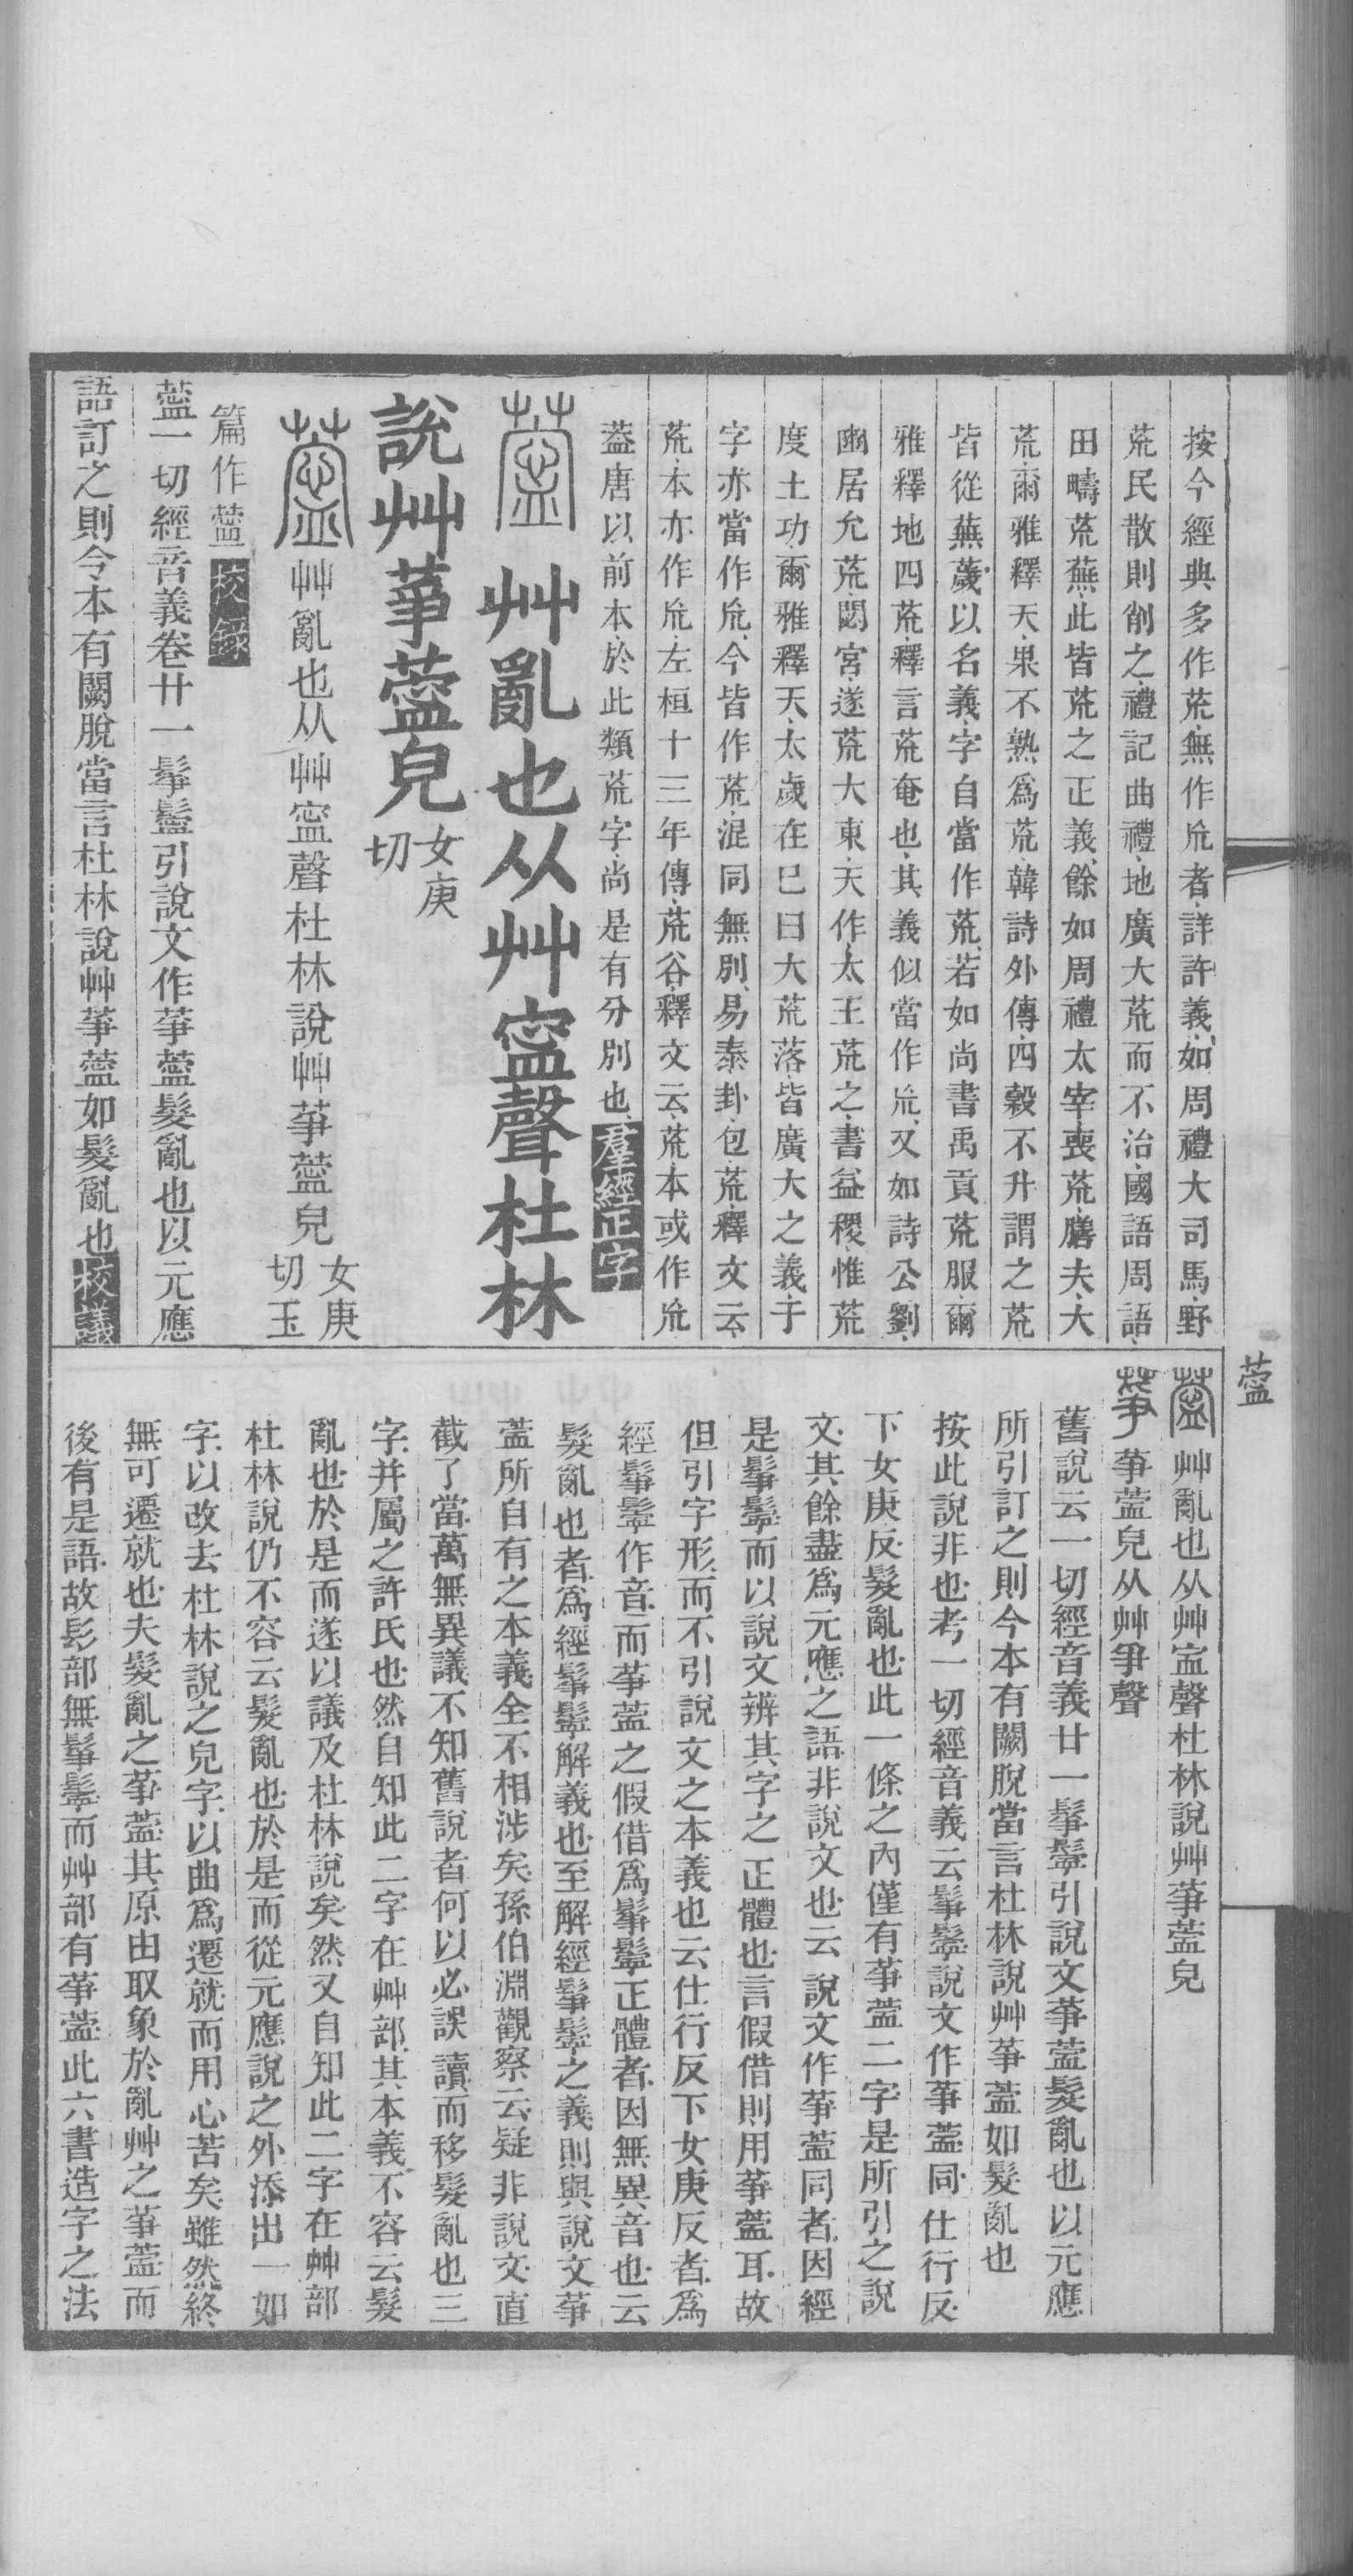 按今經典多作荒無作㠩者詳許義如周禮大司馬野
荒民散則削之禮記曲禮地廣大荒而不治國語周語
田疇荒蕪此皆荒之正義餘如周禮太宰喪荒膳夫大
荒爾雅釋天果不熟爲荒韓詩外傳四穀不升謂之荒
皆從蕪薉以名義字自當作荒若如尚書禹貢荒服爾
雅釋地四荒釋言荒奄也其義似當作㠩又如詩公劉
豳居允荒閟宮遂荒大東天作太王荒之書益稷惟荒
度土功爾雅釋天太歲在巳曰大荒落皆廣大之義于
字亦當作㠩今皆作荒混同無別易泰卦包荒釋文云
荒本亦作㠩左桓十三年傳荒谷釋文云荒本或作㠩
葢唐以前本於此類荒字尚是有分別也羣經正字
薴 艸亂也从艸寍聲杜林
說艸䓯薴皃女庚切
薴艸亂也从艸寍聲杜林說艸䓯薴皃女庚切玉
篇作薴校錄
薴一切經音義卷廿一鬇鬡引說文作䓯薴髮亂也以元應
語訂之則今本有闕脫當言杜林說艸䓯薴如髮亂也校議
薴
薴艸亂也从艸寍聲杜林說艸䓯薴皃
䓯䓯薴皃从艸爭聲
舊說云一切經音義廿一鬇鬡引說文䓯薴髮亂也以元應
所引訂之則今本有闕脫當言杜林說艸䓯薴如髮亂也
按此說非也考一切經音義云鬇鬡說文作䓯薴同仕行反
下女庚反髮亂也此一條之內僅有䓯薴二字是所引之說
文其餘盡爲元應之語非說文也云說文作䓯薴同者因經
是鬇鬡而以說文辨其字之正體也言假借則用䓯薴耳故
但引字形而不引說文之本義也云仕行反下女庚反者爲
經鬇鬡作音而䓯薴之假借爲鬇鬡正體者因無異音也云
髮亂也者爲經鬇鬡解義也至解經鬇鬡之義則與說文䓯
薴所自有之本義全不相涉矣孫伯淵觀察云疑非說文直
截了當萬無異議不知舊說者何以必誤讀而移髮亂也三
字并屬之許氏也然自知此二字在艸部其本義不容云髮
亂也於是而遂以議及杜林說矣然又自知此二字在艸部
杜林說仍不容云髮亂也於是而從元應說之外添出一如
字以改去杜林說之皃字以曲爲遷就而用心苦矣雖然終
無可遷就也夫髮亂之䓯薴其原由取象於亂艸之䓯薴而
後有是語故髟部無鬇鬡而艸部有䓯薴此六書造字之法